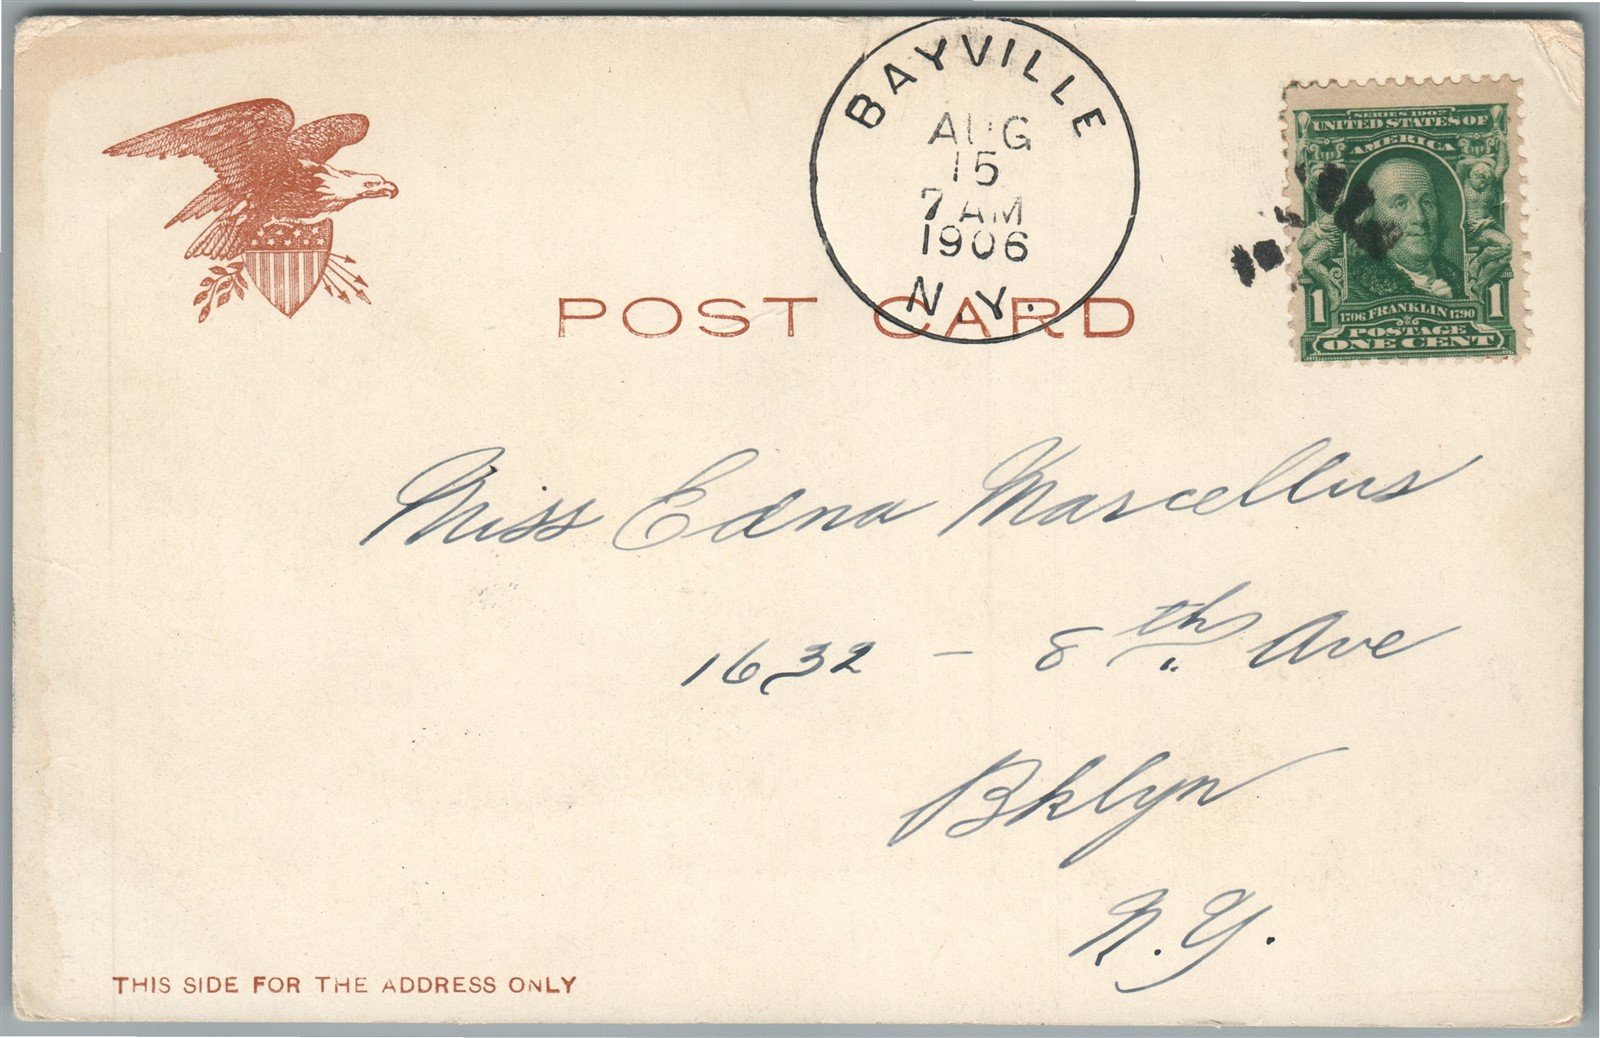 BAYVILLE
AUG
15
7 AM
1906
N.Y.
SERIES 1902
UNITED STATES OF
AMERICA
1 1706 FRANKLIN 1790 1
POSTAGE
ONE CENT
POST CARD
Miss Edna Marcellus
1632 - 8th Ave
Bklyn
N.Y.
THIS SIDE FOR THE ADDRESS ONLY